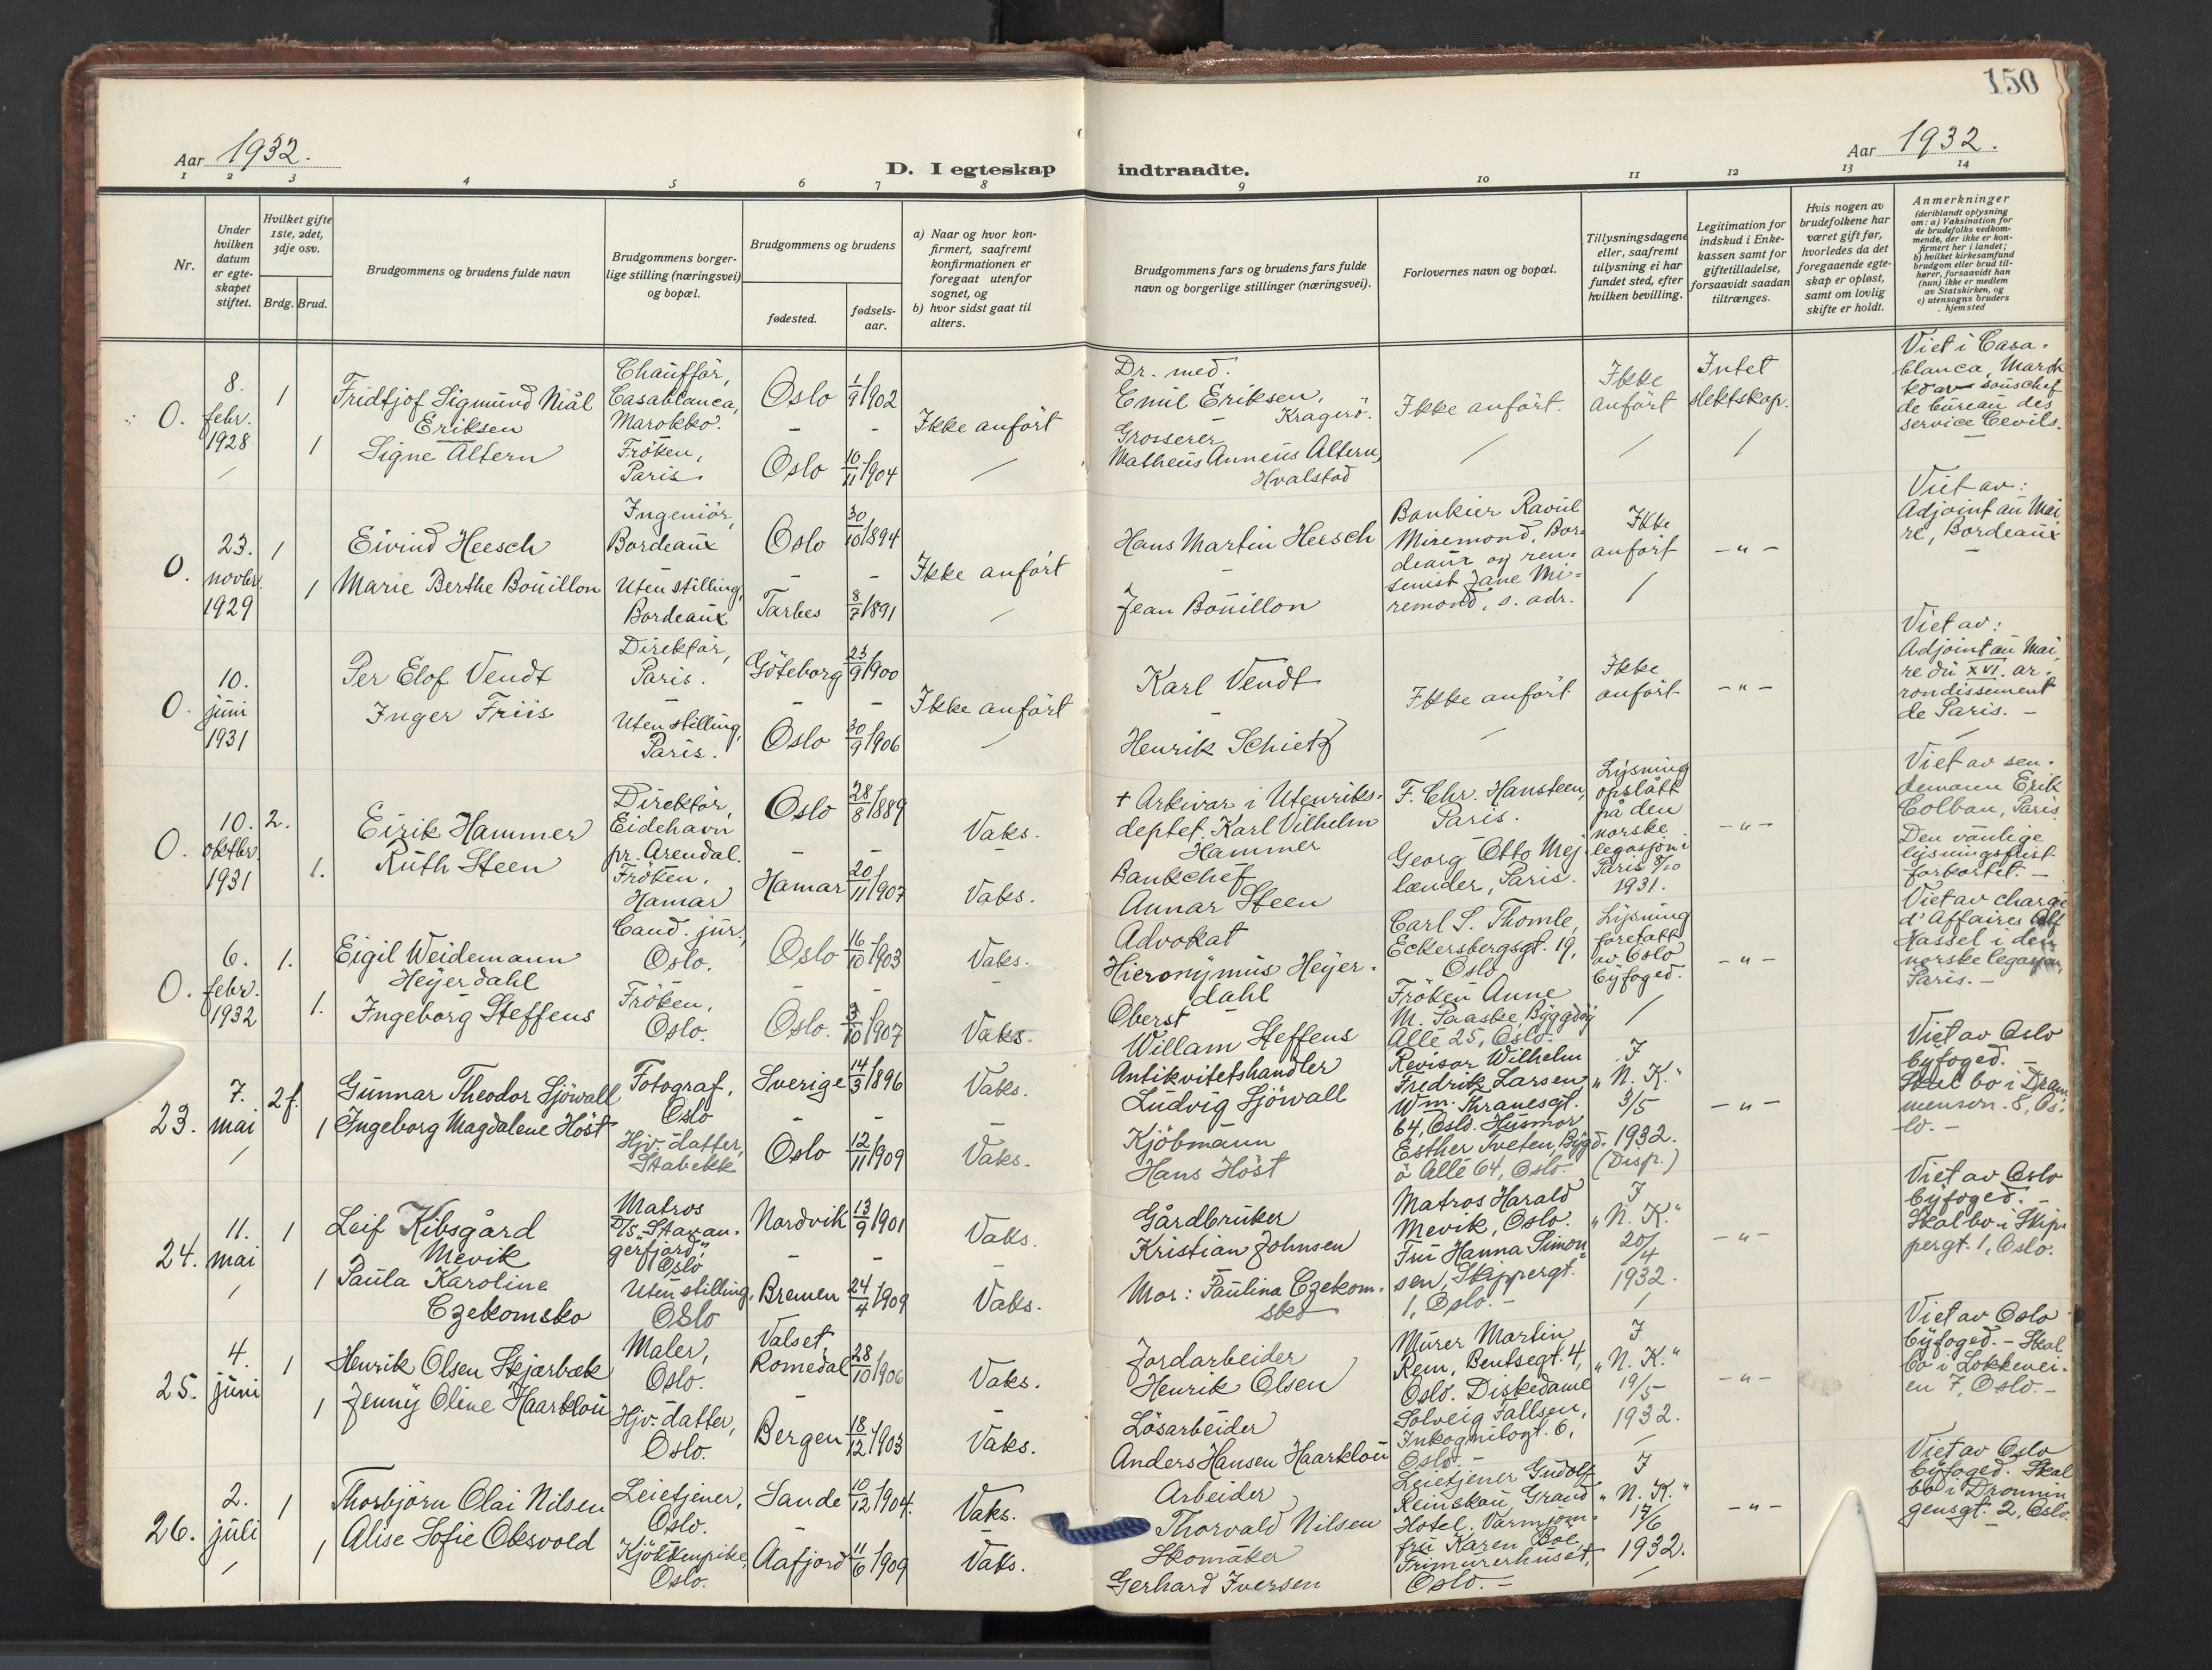 150
Aar 1932.
D. I egteskap indtraadte.
Aar 1932.
1 2 3 4 5 6 7 8 9 10 11 12 13 14
Nr.
Under hvilken datum er egte-skapet stiftet.
Hvilket gifte 1ste, 2det, 3dje osv.
Brdg. Brud.
Brudgommens og brudens fulde navn
Brudgommens borger-lige stilling (næringsvei) og bopæl.
Brudgommens og brudens
fødested.
fødsels-aar.
a) Naar og hvor kon-firmert, saafremt konfirmationen er foregaat utenfor sognet, og
b) hvor sidst gaat til alters.
Brudgommens fars og brudens fars fulde navn og borgerlige stillinger (næringsvei).
Forlovernes navn og bopæl.
Tillysningsdagene eller, saafremt tillysning ei har fundet sted, efter hvilken bevilling.
Legitimation for indskud i Enke-kassen samt for giftetilladelse, forsaavidt saadan tiltrænges.
Hvis nogen av brudefolkene har været gift før, hvorledes da det foregaaende egte-skap er opløst, samt om lovlig skifte er holdt.
Anmerkninger
(deriblandt oplysning om: a) Vaksination for de brudefolks vedkom-mende, der ikke er kon-firmert her i landet; b) hvilket kirkesamfund brudgom eller brud til-hører, forsaavidt han (hun) ikke er medlem av Statskirken, og c) utensogns bruders hjemsted
O.
8.
febr.
1928
1
Fridtjof Sigmund Niål
Eriksen
1
Signe Altern
Chauffør,
Casablanca,
Marokko.
Frøken,
Paris.
Oslo 1/9 1902
Oslo 10/11 1904
Ikke anført
Dr. med.
Emil Eriksen,
Kragerø.
Grosserer
Matheus Anneus Altern,
Hvalstad
Ikke anført.
Ikke
anført
Intet
slektskap.
Viet i Casa-
blanca, Marok
ko av souschef
de bureau des
service Cevils.
O.
23.
novbr.
1929
1
Eivind Heesch
1
Marie Berthe Bouillon
Ingeniør,
Bordeaux
Uten stilling,
Bordeaux
Oslo 30/10 1894
Tarbes 8/7 1891
Ikke anført
Hans Martin Heesch
Jean Bouillon
Bankier Raoul
Miremond, Bor-
deaux og ren-
tenist Jane Mi-
remond, s. adr.
Ikke
anført
-"-
Viet av:
Adjoint au Mai
re, Bordeaux
O.
10.
juni
1931
Per Elof Vendt
Inger Friis
Direktør,
Paris.
Uten stilling,
Paris.
Göteborg 23/9 1900
Oslo 30/9 1906
Ikke anført
Karl Vendt
Henrik Schietz
Ikke anført
Ikke
anført
-"-
Viet av:
Adjoint au Mai
re du XVI. ar-
rondissement
de Paris. -
O.
10.
oktbr.
1931
2.
Eirik Hammer
1.
Ruth Steen
Direktør,
Eidehavn
pr. Arendal.
Frøken,
Hamar
Oslo 28/8 1889
Hamar 20/11 1907
Vaks.
Vaks.
+ Arkivar i Utenriks-
deptet. Karl Vilhelm
Hammer
Bankchef
Annar Steen
F. Chr. Hansteen,
Paris.
Georg Otto Mej-
lænder, Paris.
Lysning
opslått
på den
norske
legasjon i
Paris 8/10
1931.
-"-
Viet av sen-
demann Erik
Colban, Paris
Den vanlige
lysningsfrist
forkortet. -
O.
6.
febr.
1932
1.
Eigil Weidemann
Heyerdahl
1.
Ingeborg Steffens
Cand. jur.,
Oslo.
Frøken,
Oslo.
Oslo 16/10 1903
Oslo. 3/10 1907
Vaks.
Vaks.
Advokat
Hieronymus Heyer-
dahl
Oberst
Willam Steffens
Carl S. Thomle,
Eckersbergsgt. 19,
Oslo
Frøken Anne
M. Paaske, Byggdøy
Allé 25, Oslo.
Lysning
foretatt
av Oslo
byfoged.
-"-
Viet av chargé
d'Affaires Alf
Hassel i den
norske legasjon
Paris. -
23.
7.
mai
2 f.
Gunnar Theodor Sjöwall
1
Ingeborg Magdalene Höst
Fotograf,
Oslo
Hjv. datter,
Stabekk
Sverige 14/3 1896
Oslo 12/11 1909
Vaks.
Vaks.
Antikvitetshandler
Ludvig Sjöwall
Kjöbmann
Hans Höst
Revisor Wilhelm
Fredrik Larsen,
Wm. Thranesgt.
64, Oslo. Husmor
Esther Tveten, Bygd-
ö Allé 64, Oslo.
I
"N. K."
3/5
1932.
(Disp.)
-"-
Viet av Oslo
byfoged. -
Skal bo i Dram
mensvn. 8, Os-
lo. -
24.
11.
mai
1
Leif Kibsgård
Mevik
1
Paula Karoline
Czekomsko
Matros
D/S "Stavan-
gerfjord",
Oslo
Uten stilling,
Oslo
Nordvik 13/9 1901
Bremen 24/4 1909
Vaks.
Vaks.
Gårdbruker
Kristian Johnsen
Mor: Paulina Czekom-
sko
Matros Harald
Mevik, Oslo.
Fru Hanna Simon-
sen, Skippergt.
1, Oslo. -
I
"N. K."
20/4
1932.
-"-
Viet av Oslo
byfoged. -
Skal bo i Skip-
pergt. 1, Oslo.
25.
4.
juni
1
Henrik Olsen Skjærbæk
1
Jenny Oline Haarklou
Maler,
Oslo.
Hjv. datter,
Oslo.
Valset,
Romedal 28/10 1906
Bergen 18/12 1903
Vaks.
Vaks.
Jordarbeider
Henrik Olsen
Lösarbeider
Anders Hansen Haarklou
Murer Martin
Rem, Bentsegt. 4,
Oslo. Diskedame
Solveig Fallsen,
Inkognitogt. 6,
Oslo. -
I
"N. K."
19/5
1932.
-"-
Viet av Oslo
byfoged. - Skal
bo i Lökkevei-
en 7, Oslo. -
26.
2.
juli
1
Thorbjörn Olai Nilsen
1
Alise Sofie Oksvold
Leietjener,
Oslo.
Kjökkenpike,
Oslo.
Sande 10/12 1904.
Aafjord 11/6 1909
Vaks.
Vaks.
Arbeider
Thorvald Nilsen
Skomaker
Gerhard Iversen
Leietjener Gudolf
Reinskou, Grand
Hotel. Varmjom-
fru Karen Boe,
Frimurerhuset,
Oslo. -
I
"N. K."
17/6
1932.
-"-
Viet av Oslo
byfoged. Skal
bo i Dronnin
gensgt. 2, Oslo.